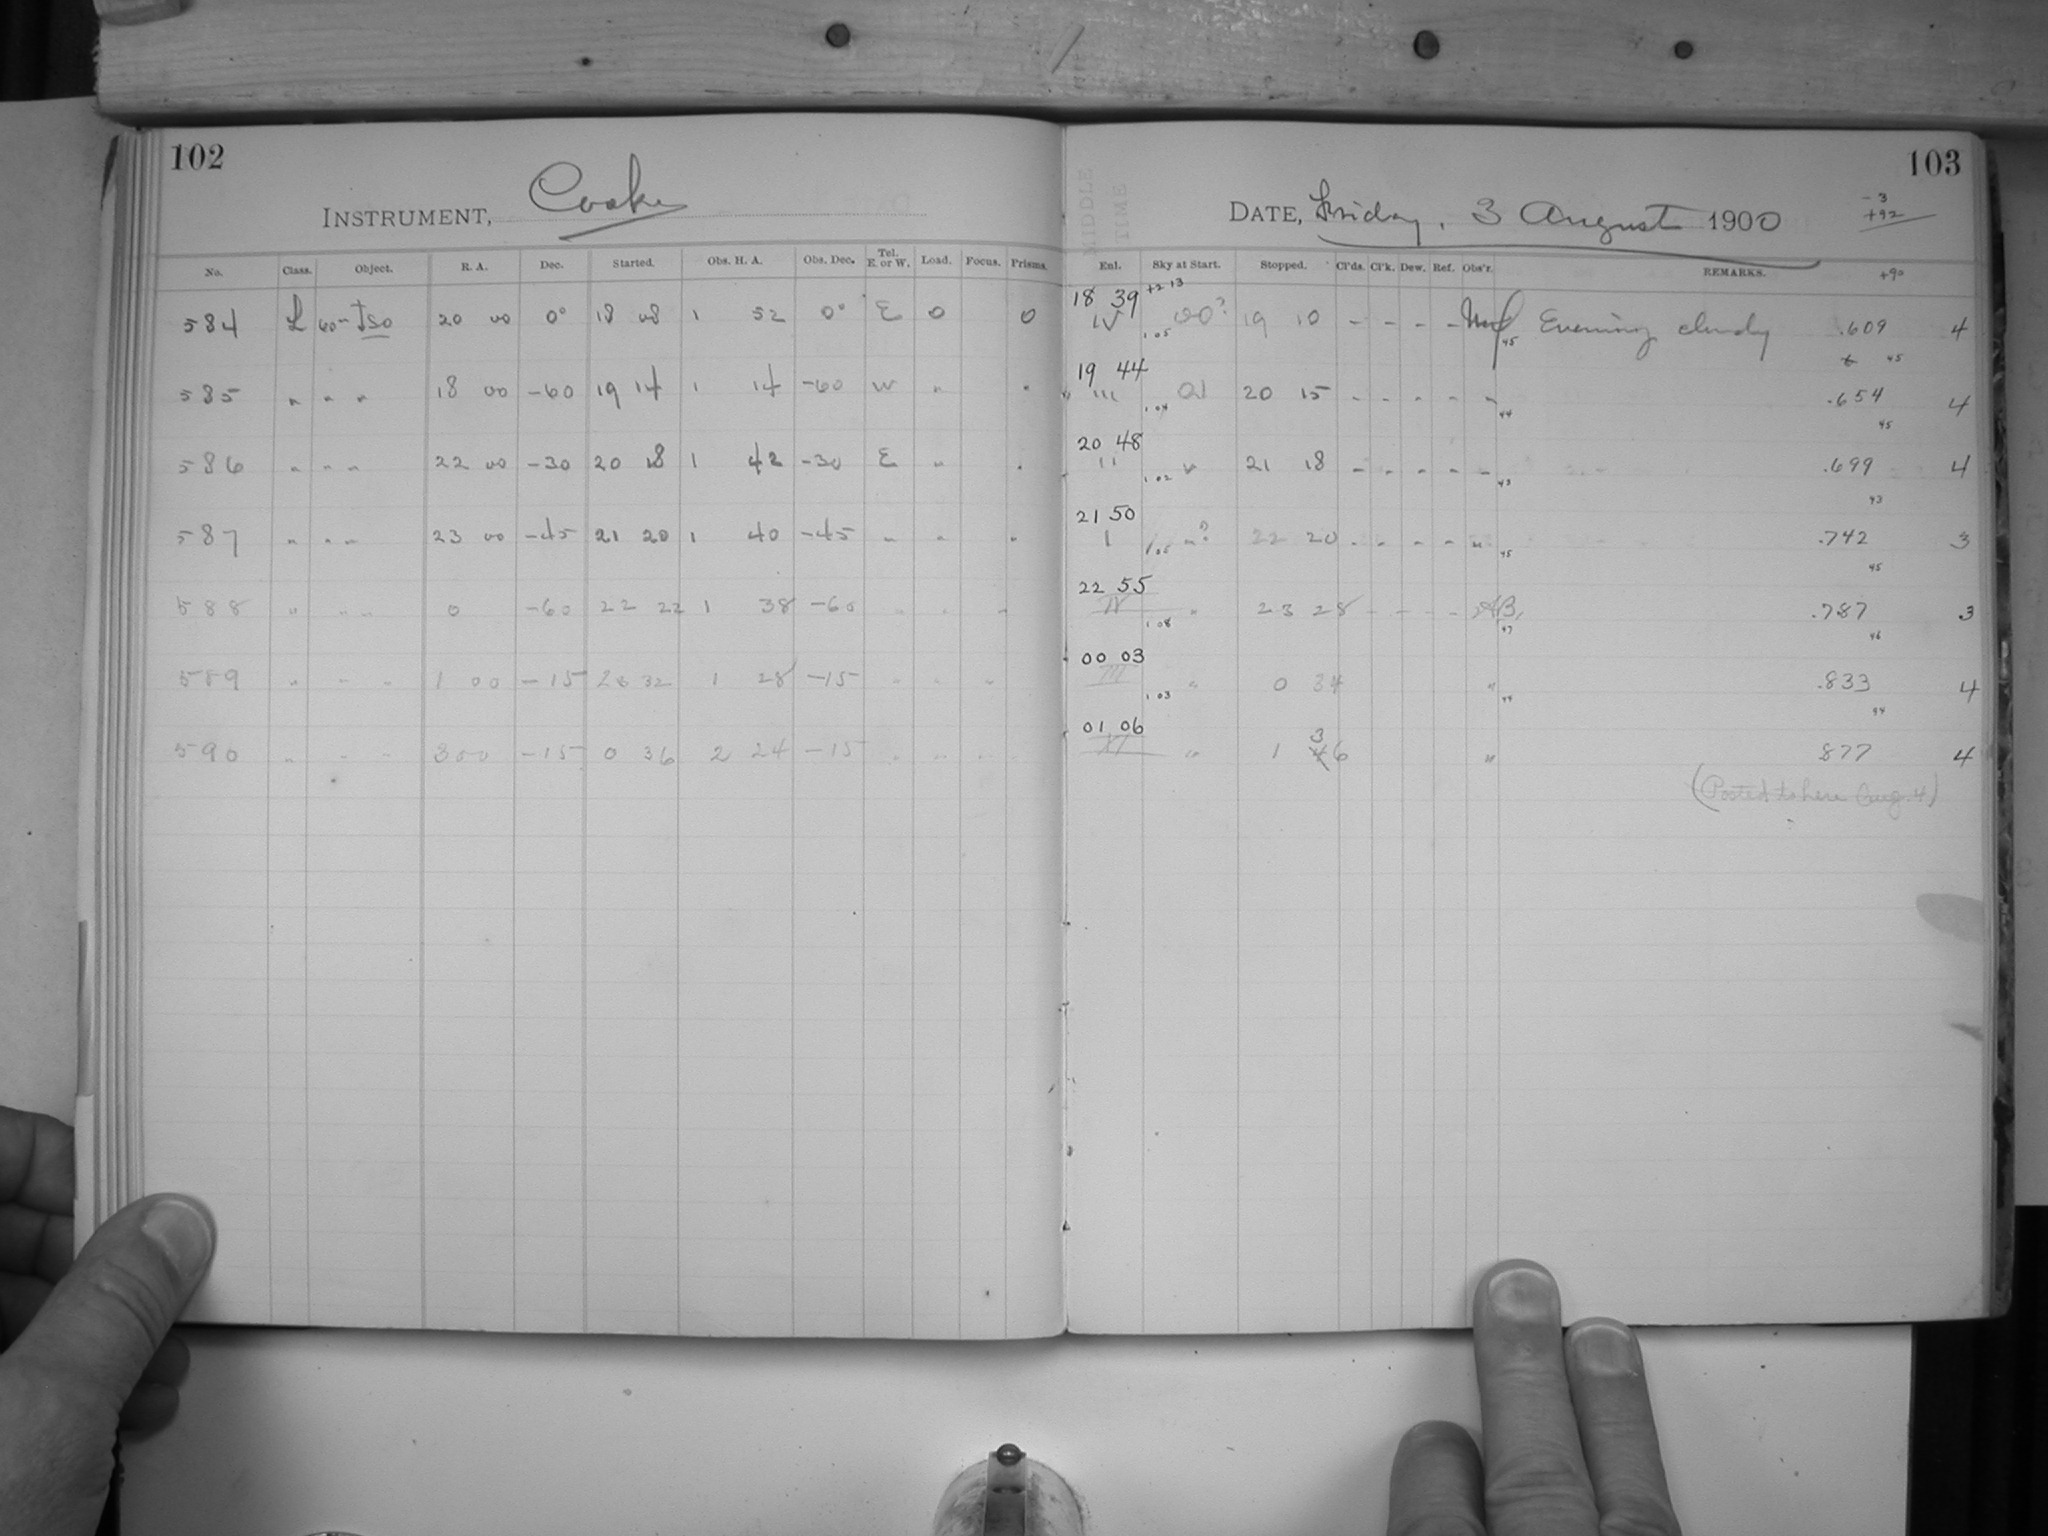 102
INSTRUMENT, Cooke
No. Class. Object. R. A. Dec. Started. Obs. H. A. Obs. Dec. Tel. E. or W. Load. Focus. Prisms.
584 L 60m Iso 20 00 0° 18 08 1 52 0° E 0 0
585 " " " 18 00 -60 19 14 1 14 -60 W " "
586 " " " 22 00 -30 20 18 1 42 -30 E " "
587 " " " 23 00 -45 21 20 1 40 -45 " " "
588 " " " 0 -60 22 22 1 38 -60 " " "
589 " " " 1 00 -15 23 32 1 28 -15 " " "
590 " " " 3 00 -15 0 36 2 24 -15 " " "
103
MIDDLE TIME
DATE, Friday, 3 August 1900
-3
+92
+90
Enl. Sky at Start. Stopped. Cl'ds. Cl'k. Dew. Ref. Obs'r. REMARKS.
18 39 +2 13
IV 1 05 00? 19 10 - - - - 45 Evening cloudy .609 4
45
19 44
III 1 04 20 15 - - - - " 44 .654 4
45
20 48
II 1 02 " 21 18 - - - - " 43 .699 4
43
21 50
I 1 05 "? 22 20 - - - - " 45 .742 3
45
22 55
IV 1 08 " 23 28 - - - - 47 .787 3
46
00 03
III 1 03 " 0 34 " 44 .833 4
44
01 06
" 1 36 " 877 4
(Posted to here Aug. 4)